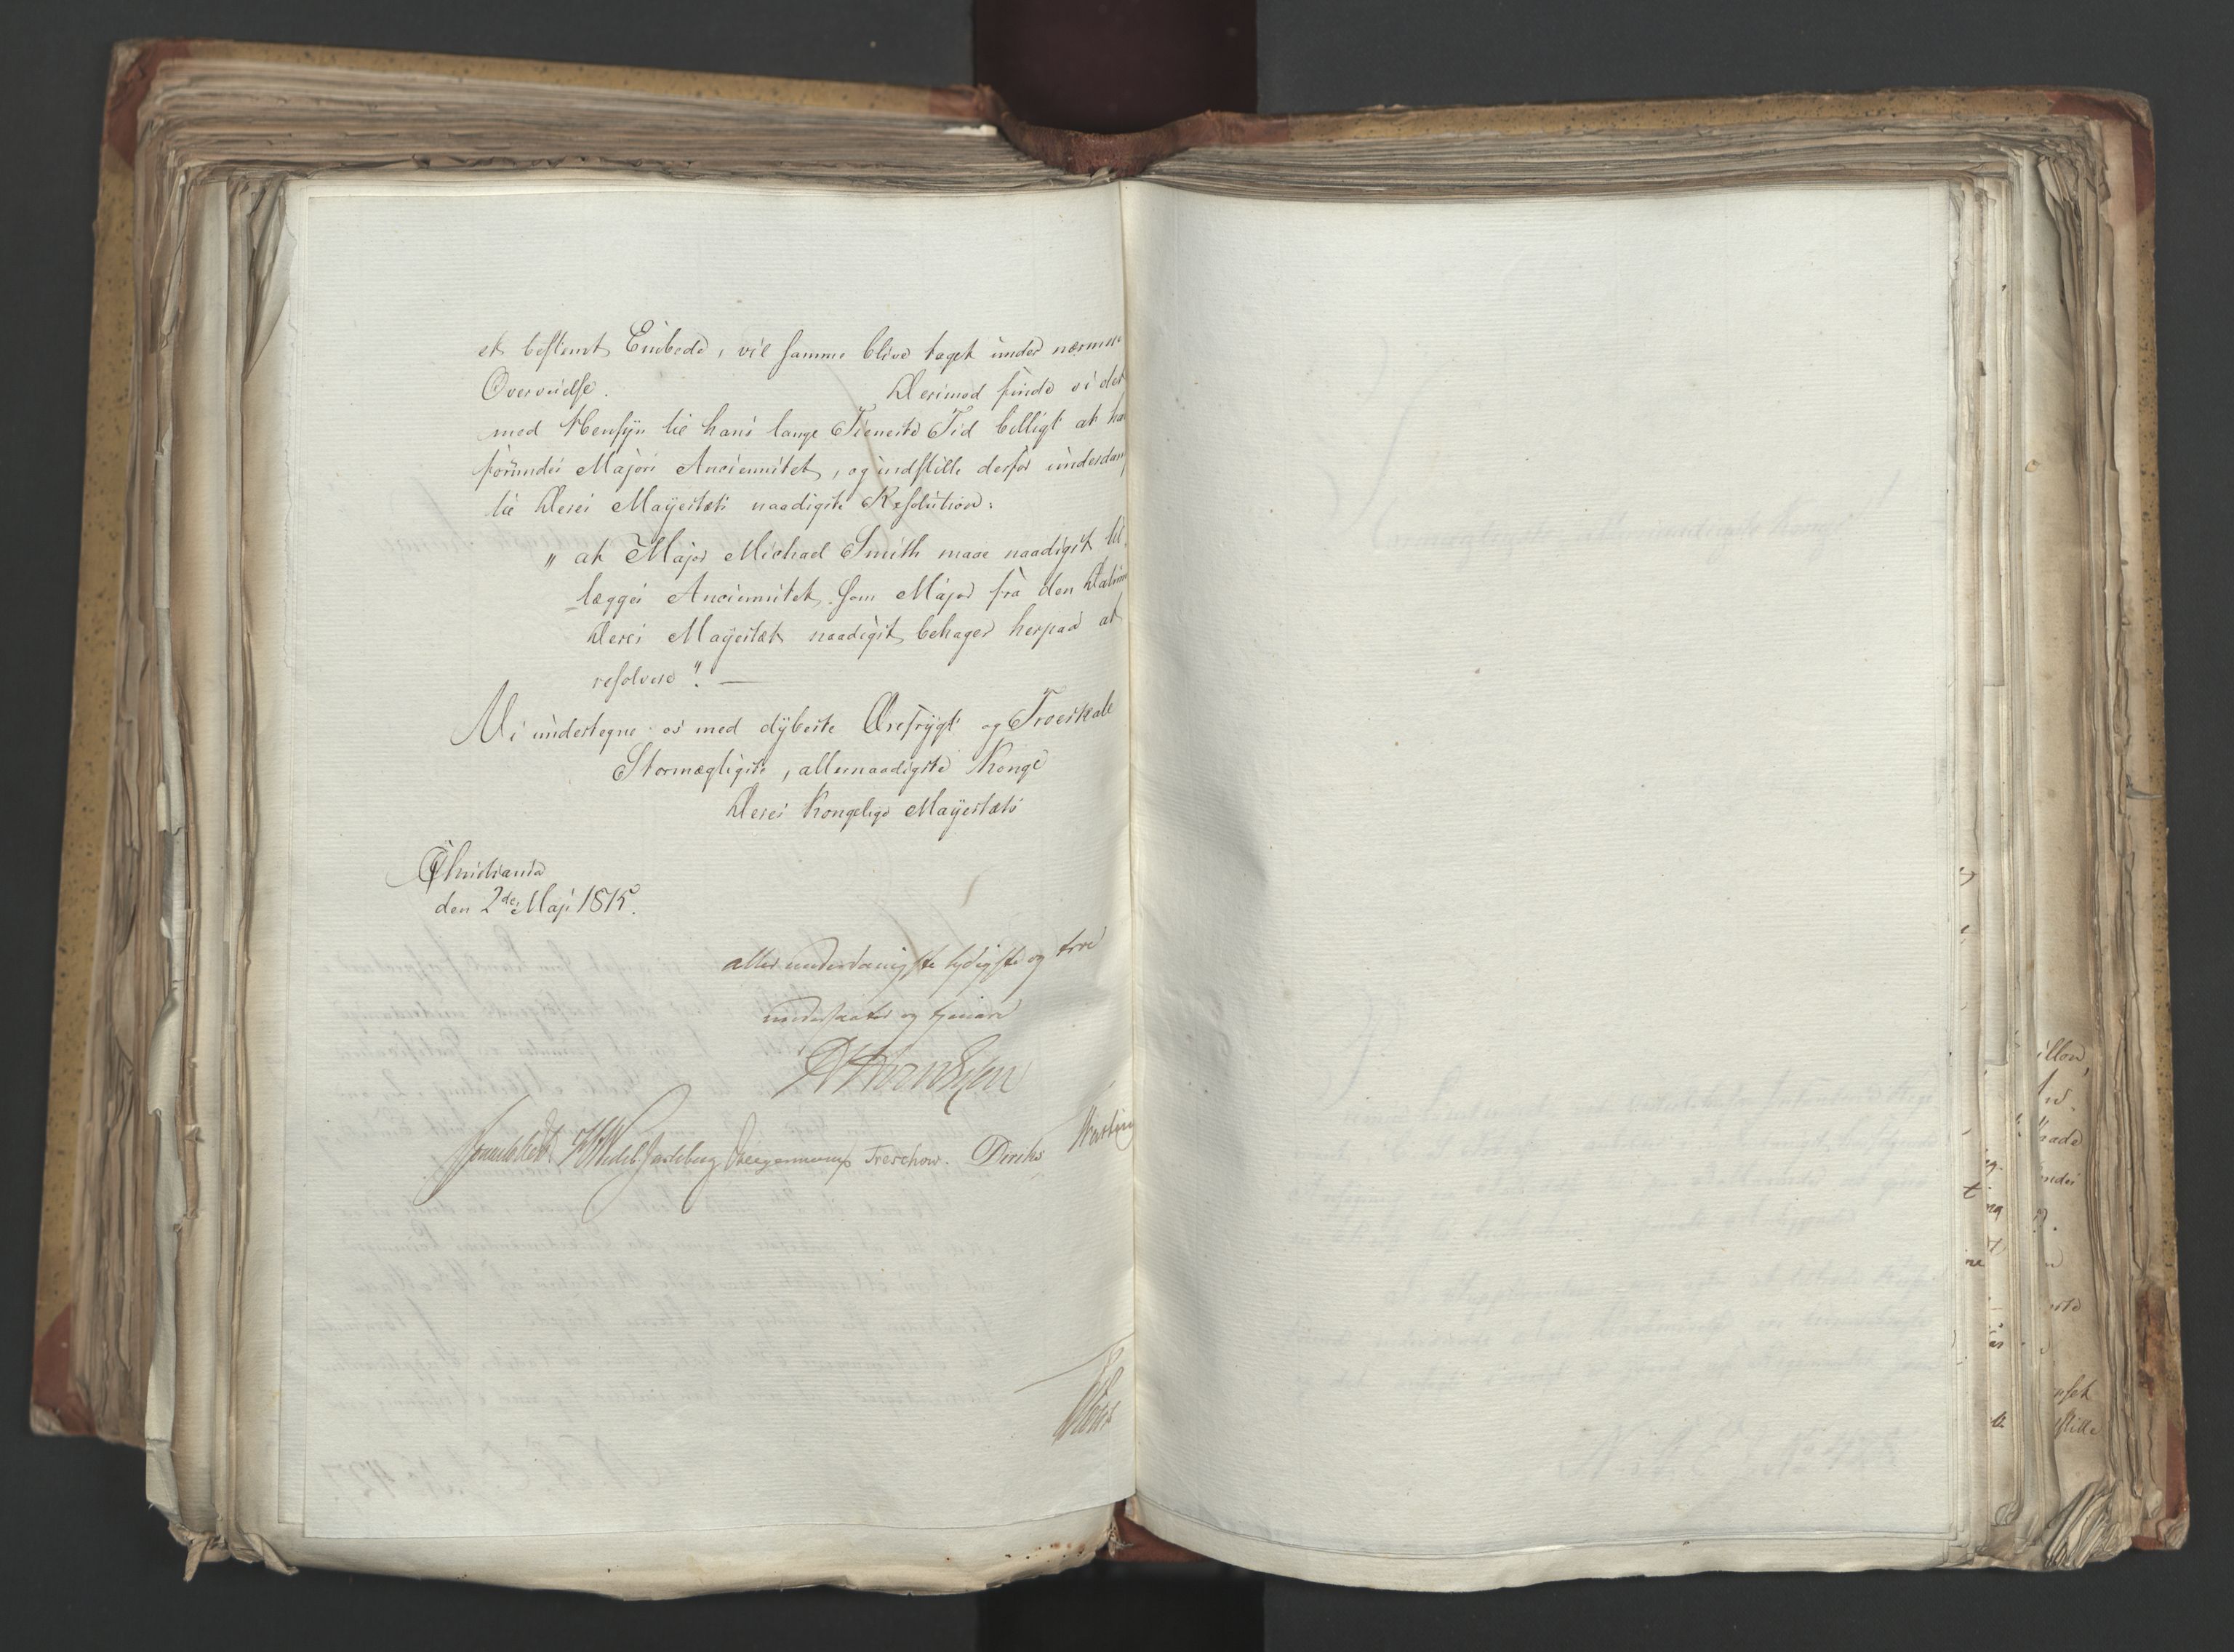 et bestemt Embede, vil samme blive taget under nærmere
Overveielse. Derimod finde vi det
med Hensyn til hans lange Tieneste Tid billigt at ha
forundes Majors Anciennitet, og indstille derfor underdan
til Deres Mayestæts naadigste Resolution:
" at Major Michael Smith maae naadigst til-
lægges Anciennitet som Major fra den Datum
Deres Mayestæt naadigst behager herpaa at
resolvere". —
Vi undertegne os med dybeste Ærefrygt og Troeskab
Stormægtigste, allernaadigste Konge
Deres Kongelige Mayestæts
Christiania
den 2de Maji 1815.
allerunderdanigste lydigste og troe
undersaatter og tjenere
Sommerhielm Wedel Jarlsberg Krogh Treschow. Diriks